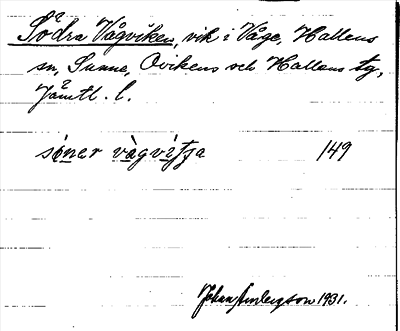 Södra Vågviken, vik i Våge, Hallens
sn, Sunne, Ovikens och Hallens tg,
Jämtl. l.
sinar vàgvitja 149
Johan 1931.